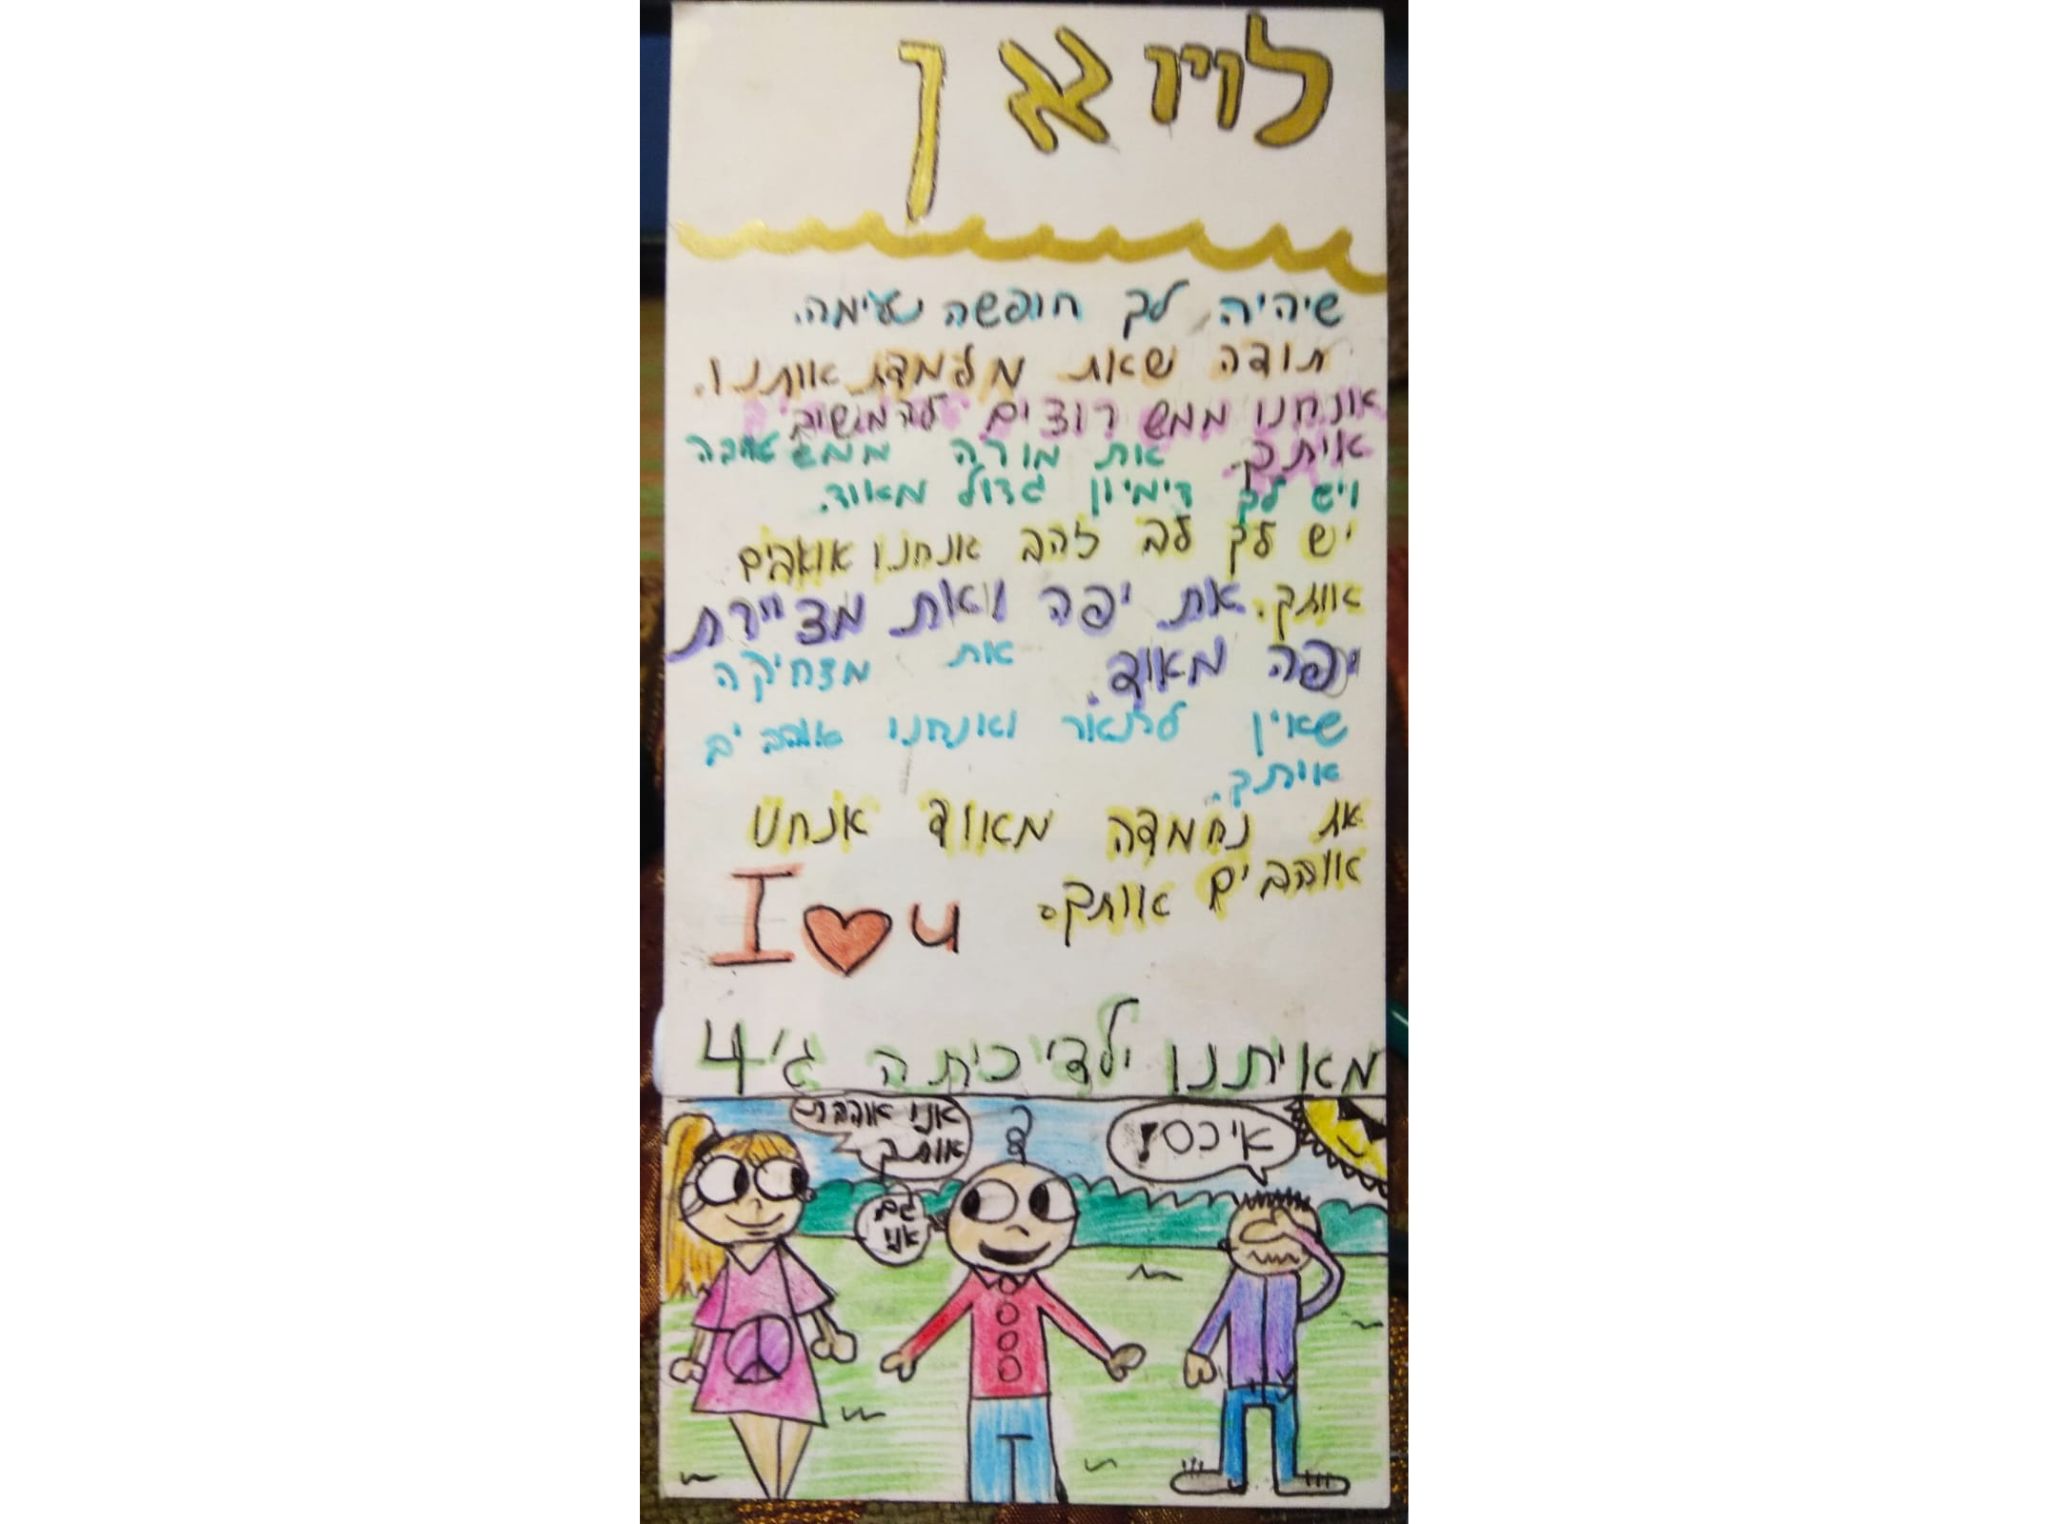 לויואן
שיהיה לך חופשה נעימה.
תודה שאת מלמדת אותנו.
אנחנו ממש רוצים להמשיך
איתך. את מורה ממש טובה
ויש לך דימיון גדול מאוד.
יש לך לב זהב אנחנו אוהבים
אותך. את יפה ואת מציירת
יפה מאוד. את מצחיקה
שאין לתאר ואנחנו אוהבים
אותך.
את נחמדה מאוד אנחנו
אוהבים אותך.
I ♥ u
מאיתנו ילדי כיתה ג'4
אני אוהבת
אותך
גם
אני
איכס!